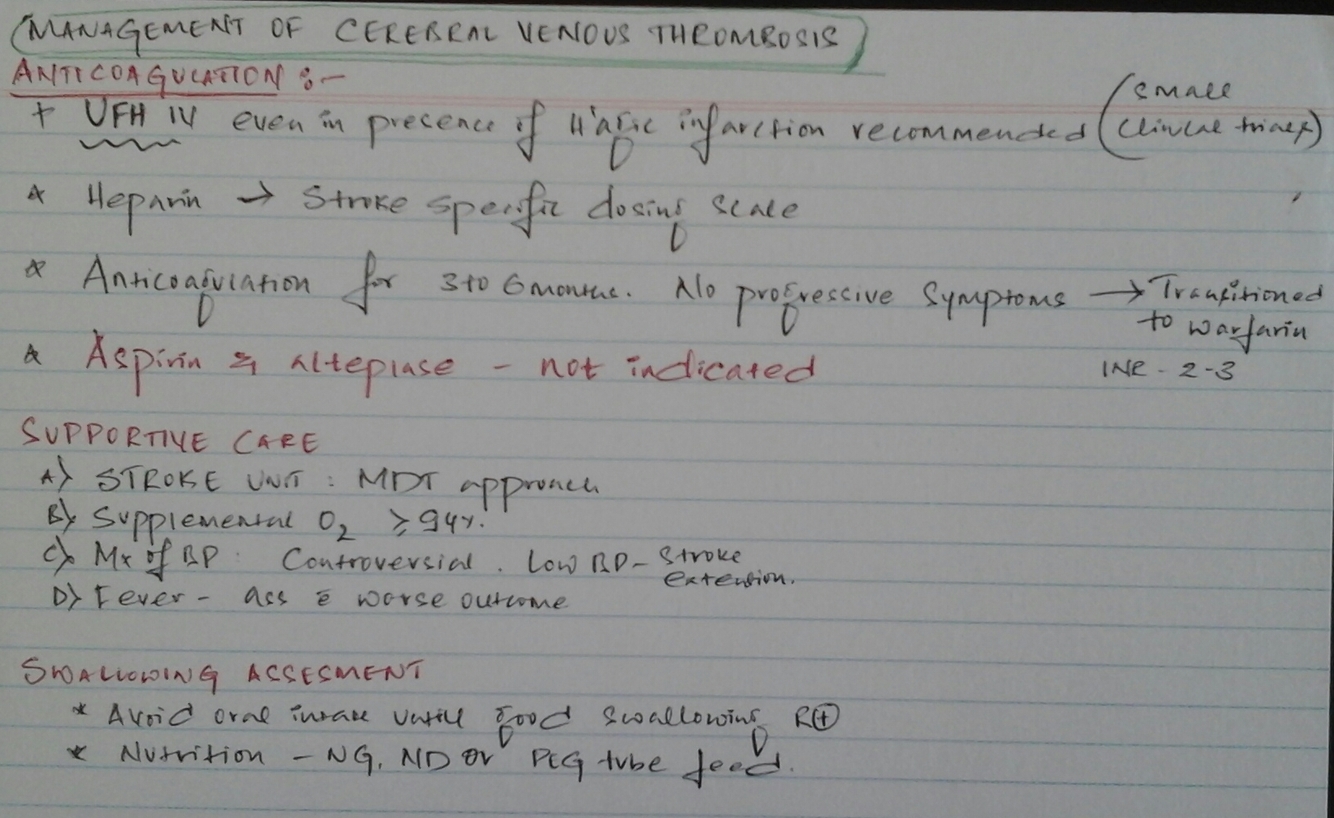 MANAGEMENT OF CEREBRAL VENOUS THROMBOSIS
ANTICOAGULATION :-
+ UFH IV even in presence of H'agic infarction recommended (small clinical trials)
* Heparin → Stroke specific dosing scale
* Anticoagulation for 3 to 6 months. No progressive symptoms → Transitioned to warfarin
INR - 2-3
* Aspirin & alteplase - not indicated
SUPPORTIVE CARE
A) STROKE UNIT : MDT approach
B) Supplemental O2 ≥94%.
C) Mx of BP : Controversial. Low BP - Stroke extension.
D) Fever - ass c̄ worse outcome
SWALLOWING ASSESMENT
* Avoid oral intake untill good swallowing R⊕
* Nutrition - NG, ND or PEG tube feed.